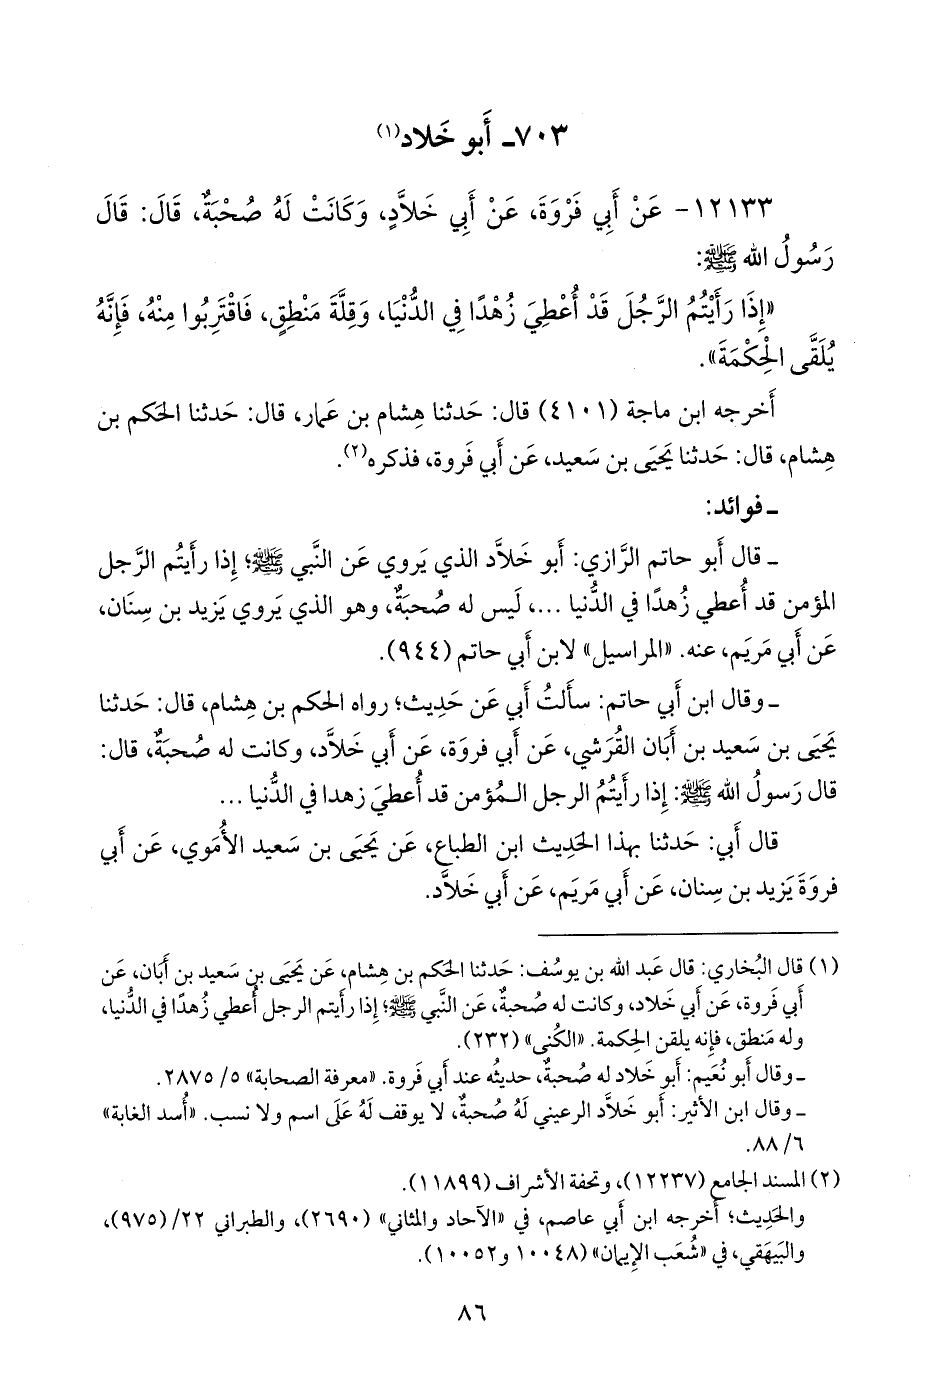 ٧٠٣ـ أَبو خَلاد(١)
١٢١٣٣- عَنْ أَبِي فَرْوَةَ، عَنْ أَبِي خَلاَّدٍ، وَكَانَتْ لَهُ صُحْبَةٌ، قَالَ: قَالَ
رَسُولُ الله ﷺ:
«إِذَا رَأَيْتُمُ الرَّجُلَ قَدْ أُعْطِيَ زُهْدًا فِي الدُّنْيَا، وَقِلَّةَ مَنْطِقٍ، فَاقْتَرِبُوا مِنْهُ، فَإِنَّهُ
يُلَقَّى الْحِكْمَةَ».
أَخرجه ابن ماجة (٤١٠١) قال: حَدثنا هِشام بن عَمار، قال: حَدثنا الحَكم بن
هِشام، قال: حَدثنا يَحيَى بن سَعيد، عَن أَبي فَروة، فذكره(٢).
ـ فوائد:
ـ قال أَبو حاتم الرَّازي: أَبو خَلاَّد الذي يَروي عَن النَّبي ﷺ؛ إِذا رأَيتُم الرَّجل
المؤمن قد أُعطي زُهدًا في الدُّنيا ...، لَيس له صُحبَةٌ، وهو الذي يَروي يَزيد بن سِنَان،
عَن أَبي مَريَم، عنه. «المراسيل» لابن أَبي حاتم (٩٤٤).
ـ وقال ابن أَبي حاتم: سأَلتُ أَبي عَن حَديث؛ رواه الحكم بن هِشام، قال: حَدثنا
يَحيَى بن سَعيد بن أَبَان القُرَشي، عَن أَبي فروَة، عَن أَبي خَلاَّد، وكانت له صُحبَةٌ، قال:
قال رَسولُ الله ﷺ: إِذا رأَيتُمُ الرجل الـمُؤمن قد أُعطيَ زهدا في الدُّنيا ...
قال أَبي: حَدثنا بهذا الحَدِيث ابن الطباع، عَن يَحيَى بن سَعيد الأُمَوي، عَن أَبي
فروَةَ يَزيد بن سِنان، عَن أَبي مَريَم، عَن أَبي خَلاَّد.
(١) قال البُخاري: قال عَبد الله بن يوسُف: حَدثنا الحَكم بن هِشام، عَن يَحيَى بن سَعيد بن أَبَان، عَن
أَبي فروة، عَن أَبي خَلاد، وكانت له صُحبةٌ، عَن النَّبي ﷺ؛ إِذا رأَيتم الرجل أُعطي زُهدًا في الدُّنيا،
وله مَنطق، فإِنه يلقن الحِكمة. «الكُنى» (٢٣٢).
ـ وقال أَبو نُعَيم: أَبو خَلاد له صُحبةٌ، حَديثُه عند أَبي فَروة. «معرفة الصحابة» ٥/ ٢٨٧٥.
ـ وقال ابن الأَثير: أَبو خَلاَّد الرعيني لَهُ صُحبةٌ، لا يوقف لَهُ عَلَى اسم ولا نسب. «أُسد الغابة»
٦/ ٨٨.
(٢) المسند الجامع (١٢٢٣٧)، وتحفة الأشراف (١١٨٩٩).
والحَدِيث؛ أَخرجه ابن أَبي عاصم، في «الآحاد والمثاني» (٢٦٩٠)، والطبراني ٢٢/ (٩٧٥)،
والبَيهَقي، في «شُعَب الإِيمان» (١٠٠٤٨ و١٠٠٥٢).
٨٦